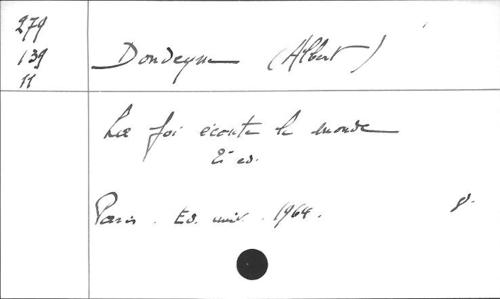 279
139
11
Dondeyne (Albert)
La foi écoute le monde
2e ed.
Paris. Ed. univ. 1964.
8.